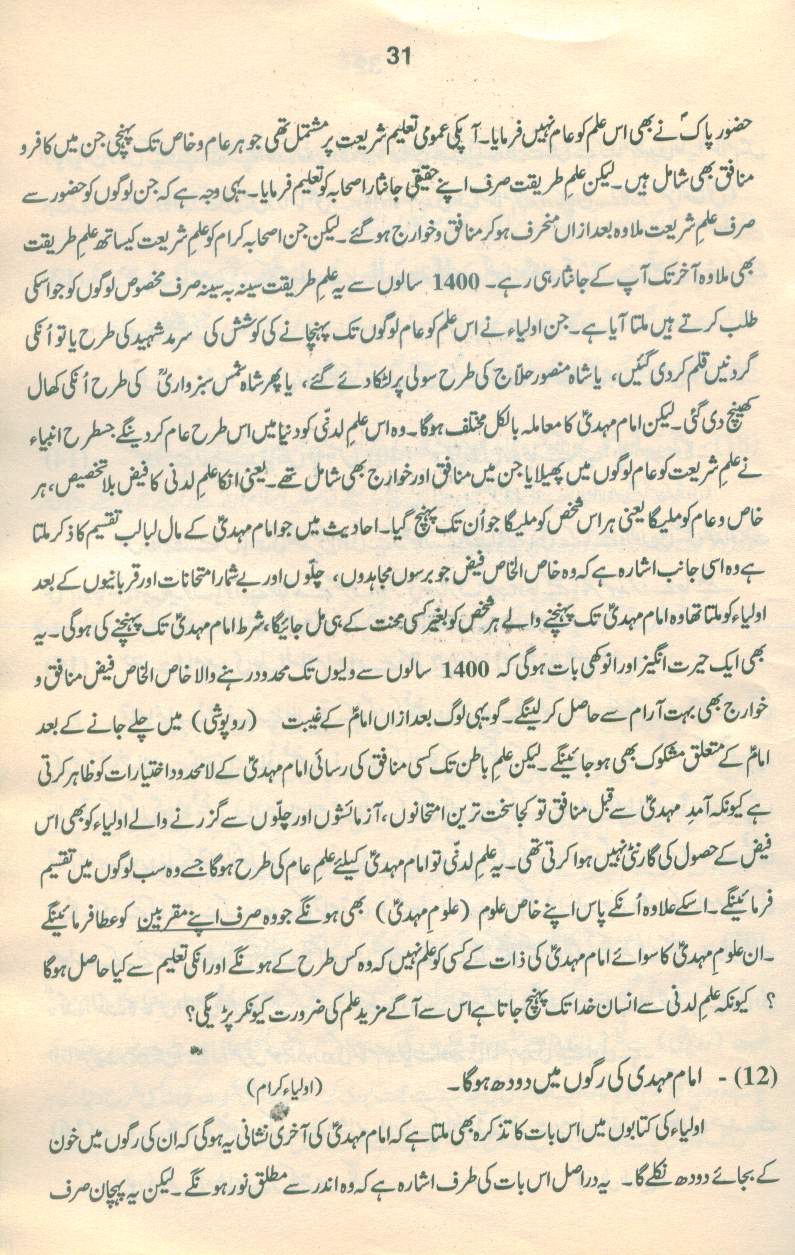 31
حضور پاکؐ نے بھی اس علم کو عام نہیں فرمایا۔ آپکی عمومی تعلیم شریعت پر مشتمل تھی جو ہر عام و خاص تک پہنچی جن میں کافر و
منافق بھی شامل ہیں۔ لیکن علمِ طریقت صرف اپنے حقیقی جانثار اصحابہ کو تعلیم فرمایا۔ یہی وجہ ہے کہ جن لوگوں کو حضور سے
صرف علمِ شریعت ملا وہ بعد ازاں منحرف ہو کر منافق و خوارج ہو گئے۔ لیکن جن اصحابہ کرام کو علمِ شریعت کیساتھ علمِ طریقت
بھی ملا وہ آخر تک آپ کے جانثار ہی رہے۔ 1400 سالوں سے یہ علمِ طریقت سینہ بہ سینہ صرف مخصوص لوگوں کو جو اسکی
طلب کرتے ہیں ملتا آیا ہے۔ جن اولیاء نے اس علم کو عام لوگوں تک پہنچانے کی کوشش کی سرمد شہید کی طرح یا تو اُنکی
گردنیں قلم کر دی گئیں، یا شاہ منصور حلاّج کی طرح سولی پر لٹکا دئے گئے، یا پھر شاہ شمس سبزواریؒ کی طرح اُنکی کھال
کھینچ دی گئی۔ لیکن امام مہدیؑ کا معاملہ بالکل مختلف ہوگا۔ وہ اس علمِ لدنّی کو دنیا میں اس طرح عام کر دینگے جسطرح انبیاء
نے علمِ شریعت کو عام لوگوں میں پھیلایا جن میں منافق اور خوارج بھی شامل تھے۔ یعنی انکا علمِ لدنی کا فیض بلا تخصیص، ہر
خاص و عام کو ملیگا یعنی ہر اس شخص کو ملیگا جو اُن تک پہنچ گیا۔ احادیث میں جو امام مہدیؑ کے مال لبالب تقسیم کا ذکر ملتا
ہے وہ اسی جانب اشارہ ہے کہ وہ خاص الخاص فیض جو برسوں مجاہدوں، چلّوں اور بے شمار امتحانات اور قربانیوں کے بعد
اولیاء کو ملتا تھا وہ امام مہدیؑ تک پہنچنے والے ہر شخص کو بغیر کسی محنت کے ہی مل جائیگا، شرط امام مہدیؑ تک پہنچنے کی ہو گی۔ یہ
بھی ایک حیرت انگیز اور انوکھی بات ہو گی کہ 1400 سالوں سے ولیوں تک محدود رہنے والا خاص الخاص فیض منافق و
خوارج بھی بہت آرام سے حاصل کر لینگے۔ گو یہی لوگ بعد ازاں امامؑ کے غیبت (روپوشی) میں چلے جانے کے بعد
امامؑ کے متعلق مشکوک بھی ہو جائینگے۔ لیکن علمِ باطن تک کسی منافق کی رسائی امام مہدیؑ کے لامحدود اختیارات کو ظاہر کرتی
ہے کیونکہ آمدِ مہدیؑ سے قبل منافق تو کجا سخت ترین امتحانوں، آزمائشوں اور چلّوں سے گزرنے والے اولیاء کو بھی اس
فیض کے حصول کی گارنٹی نہیں ہوا کرتی تھی۔ یہ علمِ لدنّی تو امام مہدیؑ کیلئے علمِ عام کی طرح ہوگا جسے وہ سب لوگوں میں تقسیم
فرمائینگے۔ اسکے علاوہ اُنکے پاس اپنے خاص علوم (علومِ مہدیؑ) بھی ہونگے جو وہ صرف اپنے مقربین کو عطا فرمائینگے
۔ ان علومِ مہدیؑ کا سوائے امام مہدیؑ کی ذات کے کسی کو علم نہیں کہ وہ کس طرح کے ہونگے اور انکی تعلیم سے کیا حاصل ہوگا
؟ کیونکہ علمِ لدنی سے انسان خدا تک پہنچ جاتا ہے اس سے آگے مزید علم کی ضرورت کیونکر پڑیگی؟
(12) - امام مہدی کی رگوں میں دودھ ہوگا۔ (اولیاء کرام)
اولیاء کی کتابوں میں اس بات کا تذکرہ بھی ملتا ہے کہ امام مہدیؑ کی آخری نشانی یہ ہوگی کہ ان کی رگوں میں خون
کے بجائے دودھ نکلے گا۔ یہ دراصل اس بات کی طرف اشارہ ہے کہ وہ اندر سے مطلق نور ہونگے۔ لیکن یہ پہچان صرف